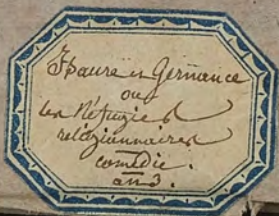 Isaure et Germance
ou
les Réfugiés
religionnaires
comédie.
an 3.